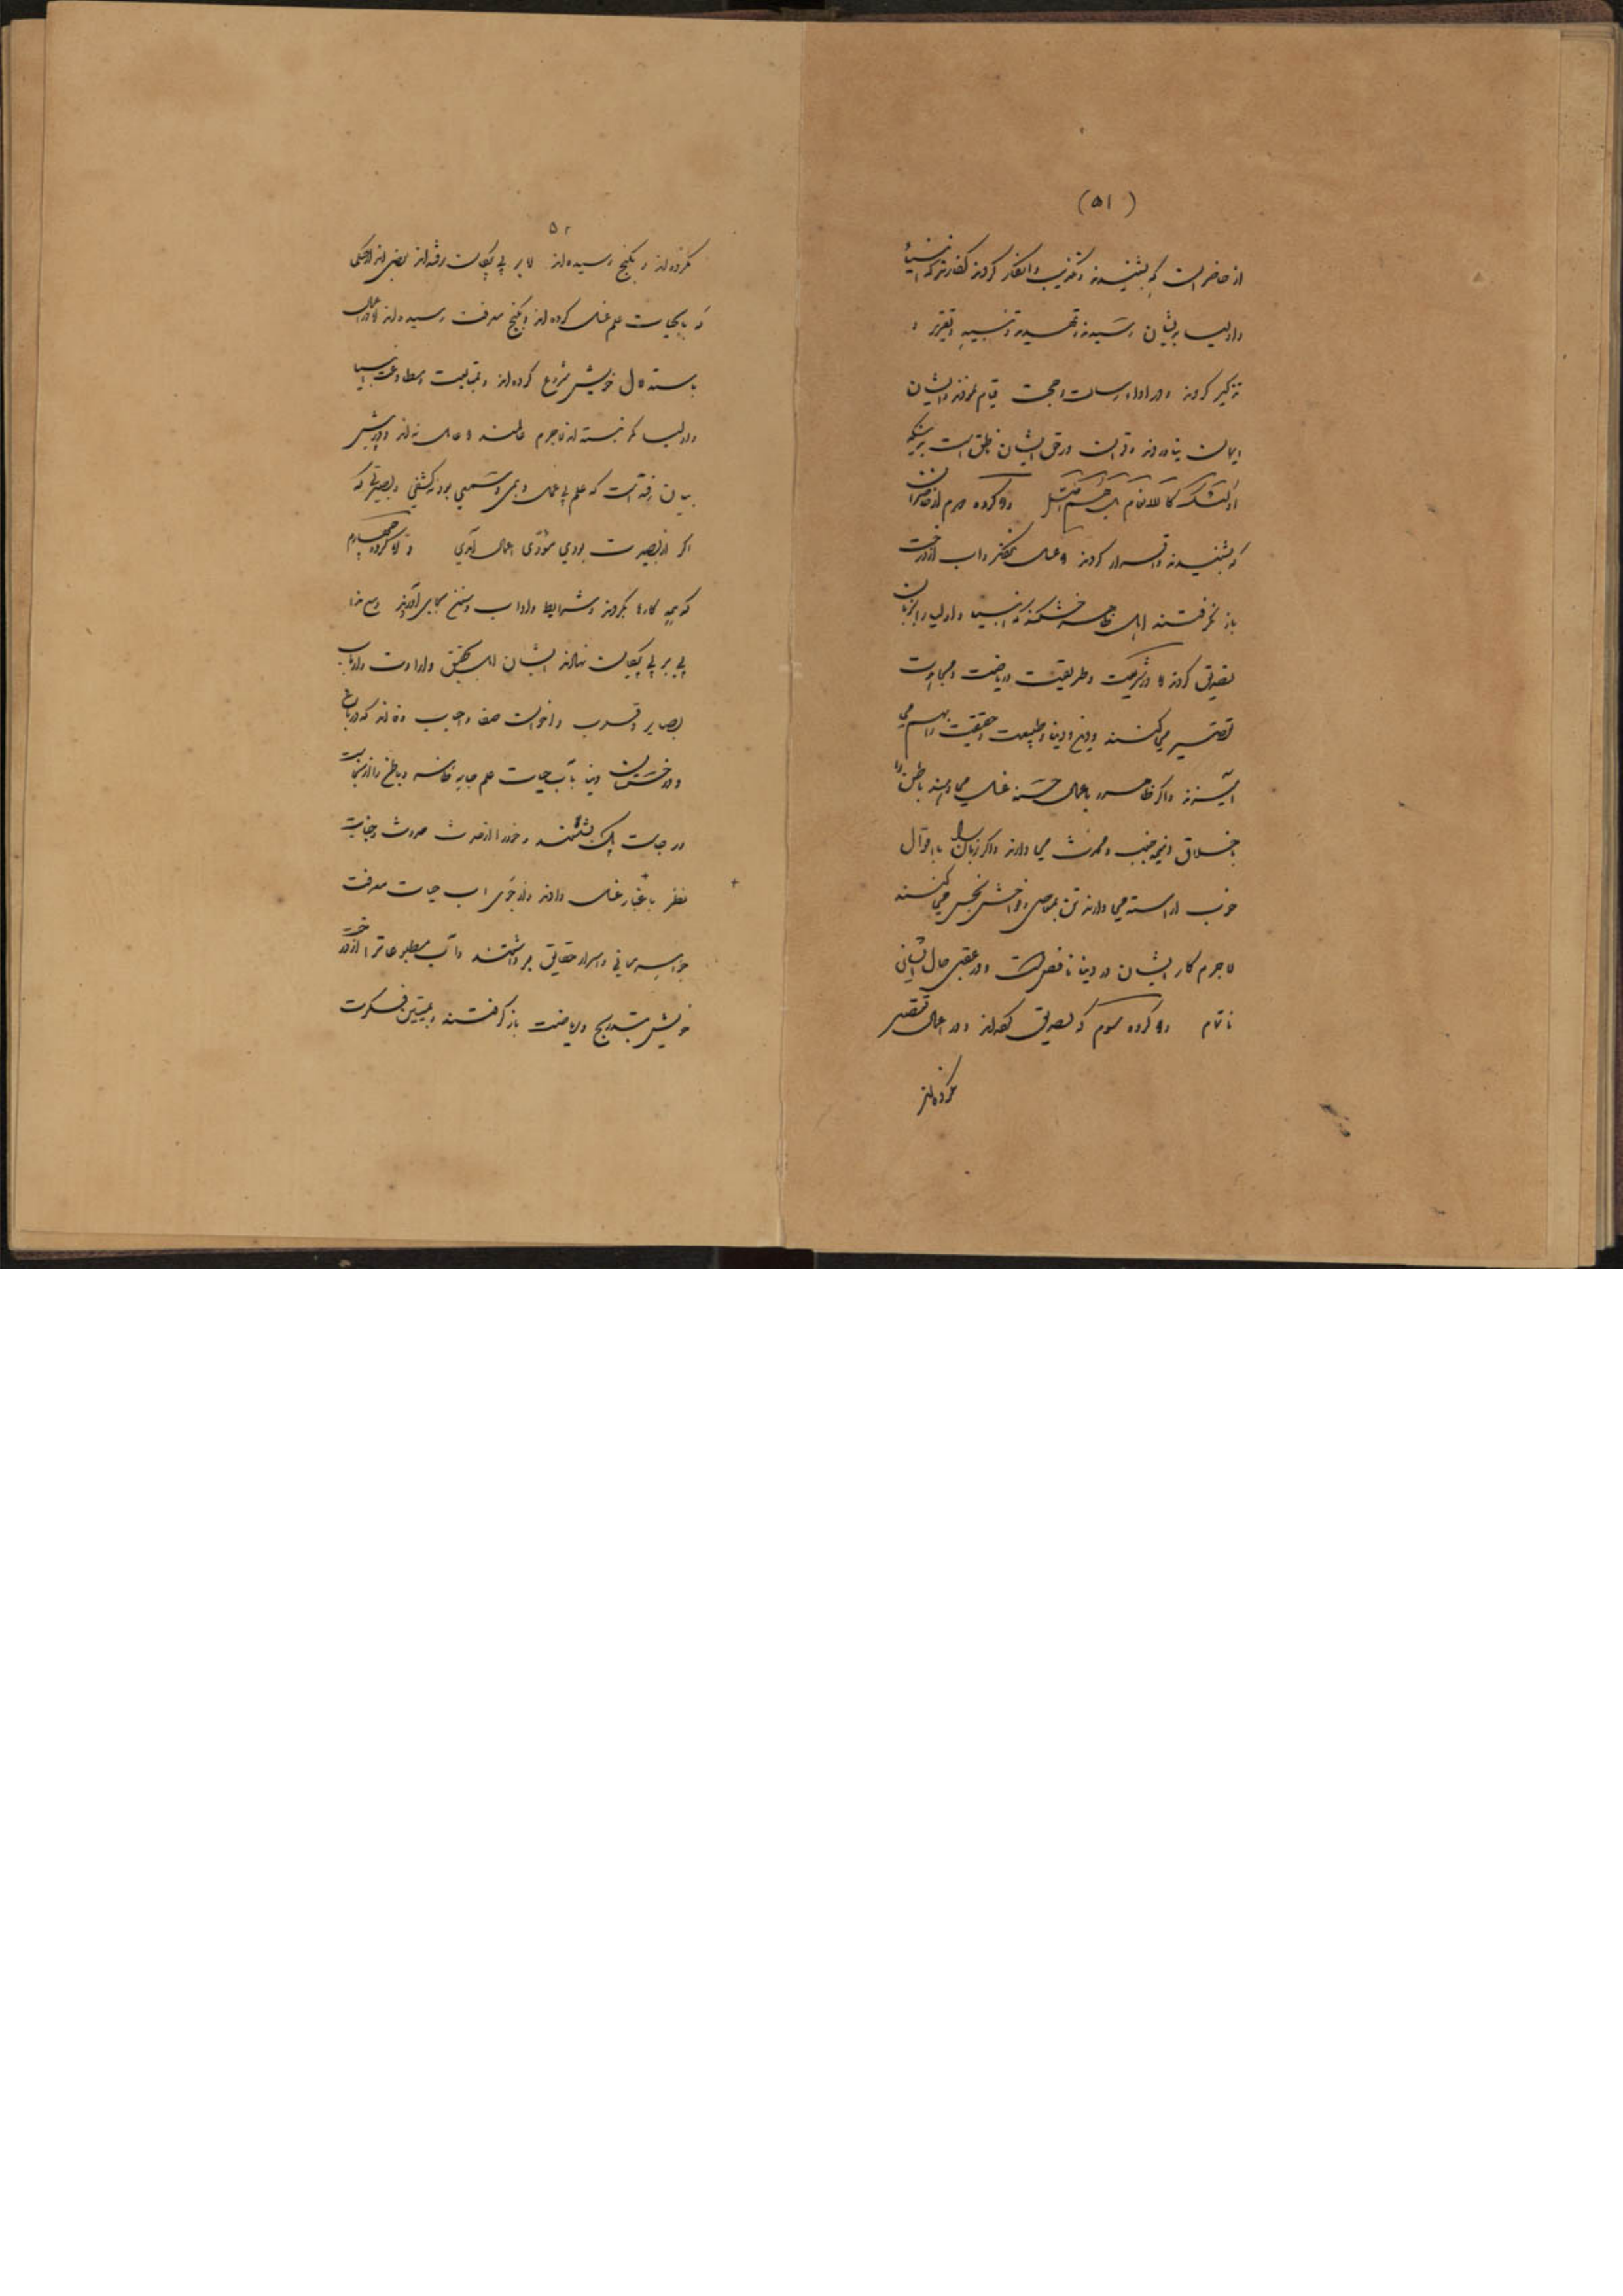 (۵۱)
از حاضرانست که بشنیدند و تکذیب و انکار کردند کفارند که انبیا
و اولیا بریشان رسیدند و تهدید و تنبیه و تقریر و
تذکیر کردند و در اداء رسالت و حجت قیام نمودند و ایشان
ایمان نیاوردند و قرآن در حق ایشان ناطق است برینکه
اولئک کالانعام بل هم اضل و گروه دوم از حاضران
که بشنیدند و اقرار کردند و عمل نکردند و آب از درخت
باز نگرفتند اهل ظاهر خشکند که انبیا و اولیا را بزبان
تصدیق کردند و در شریعت و طریقت و ریاضت و مجاهدت
تقصیر می کنند و دین و دنیا و طبیعت و حقیقت را بهم می
آمیزند و اگر ظاهر را باعمال حسنه غسل می دهند باطن را
باخلاق ذمیمه جنب و محدث می دارند و اگر زبان را باقوال
خوب آراسته می دارند تن بمعاصی و فواحش نجس می کنند
لاجرم کار ایشان در دنیا ناقص است و در عقبی حال ایشان
ناتمام و گروه سوم که تصدیق کرده‌اند و در اعمال تقصیر
نکرده‌اند
۵۲
نکرده‌اند و بگنج رسیده‌اند اما بر پی پیکان نرفته‌اند بعضی از
که بآب حیات علم غسل کرده‌اند و بگنج معرفت رسیده‌اند اما در اعمال
باستدلال خویش شروع کرده‌اند و بمتابعت و مطاوعت انبیا
و اولیا کمر نبسته‌اند لاجرم عالمند و عامل نه‌اند و در پیش
بیان رفته است که علم بی عمل وهمی و سمعی بود نه کشفی و بصیرتی که
اگر از بصیرت بودی مؤدی اعمال آمدی و اما گروه چهارم
که همه کارها بکردند و شرایط و آداب و سنن بجای آوردند و مع هذا
پی بر پی پیکان نهادند ایشان اهل تحقیق و ارادت و ارباب
بصایر و قلوب و اخوان صفا و احباب وفا اند که در باغ
و درختستان دنیا بآب حیات علم جامه ظاهر و باطن را از نجاست
و خود را از حدث حدوث و جنابت
نظر باغیار غسل دادند و از جوی آب حیات معرفت
جواهر معانی و اسرار حقایق برداشتند و آب مطبوعات را از درخت
خویش بتدریج و ریاضت باز گرفتند و بتیشه فکرت